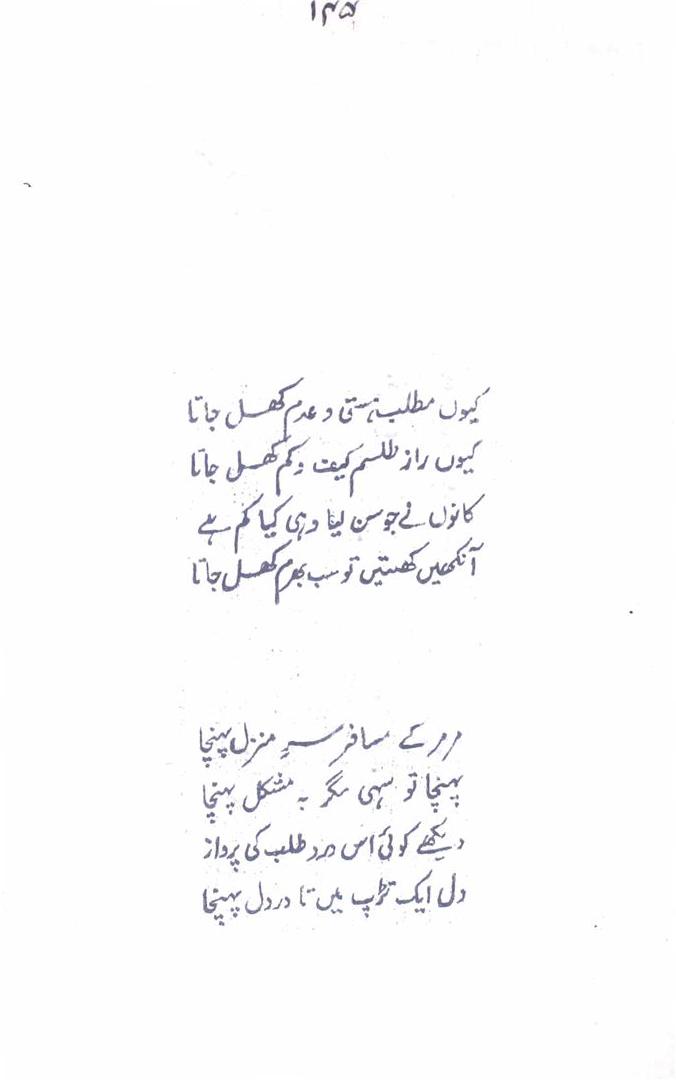 ۱۴۵
کیوں مطلب ہستی و عدم کھل جاتا
کیوں راز طلسم کیف و کم کھل جاتا
کانوں نے جو سن لیا وہی کیا کم ہے
آنکھیں کھلتیں تو سب بھرم کھل جاتا
مر مر کے مسافر سرِ منزل پہنچا
پہنچا تو سہی مگر بہ مشکل پہنچا
دیکھے کوئی اس درد طلب کی پرواز
دل ایک تڑپ میں تا در دل پہنچا